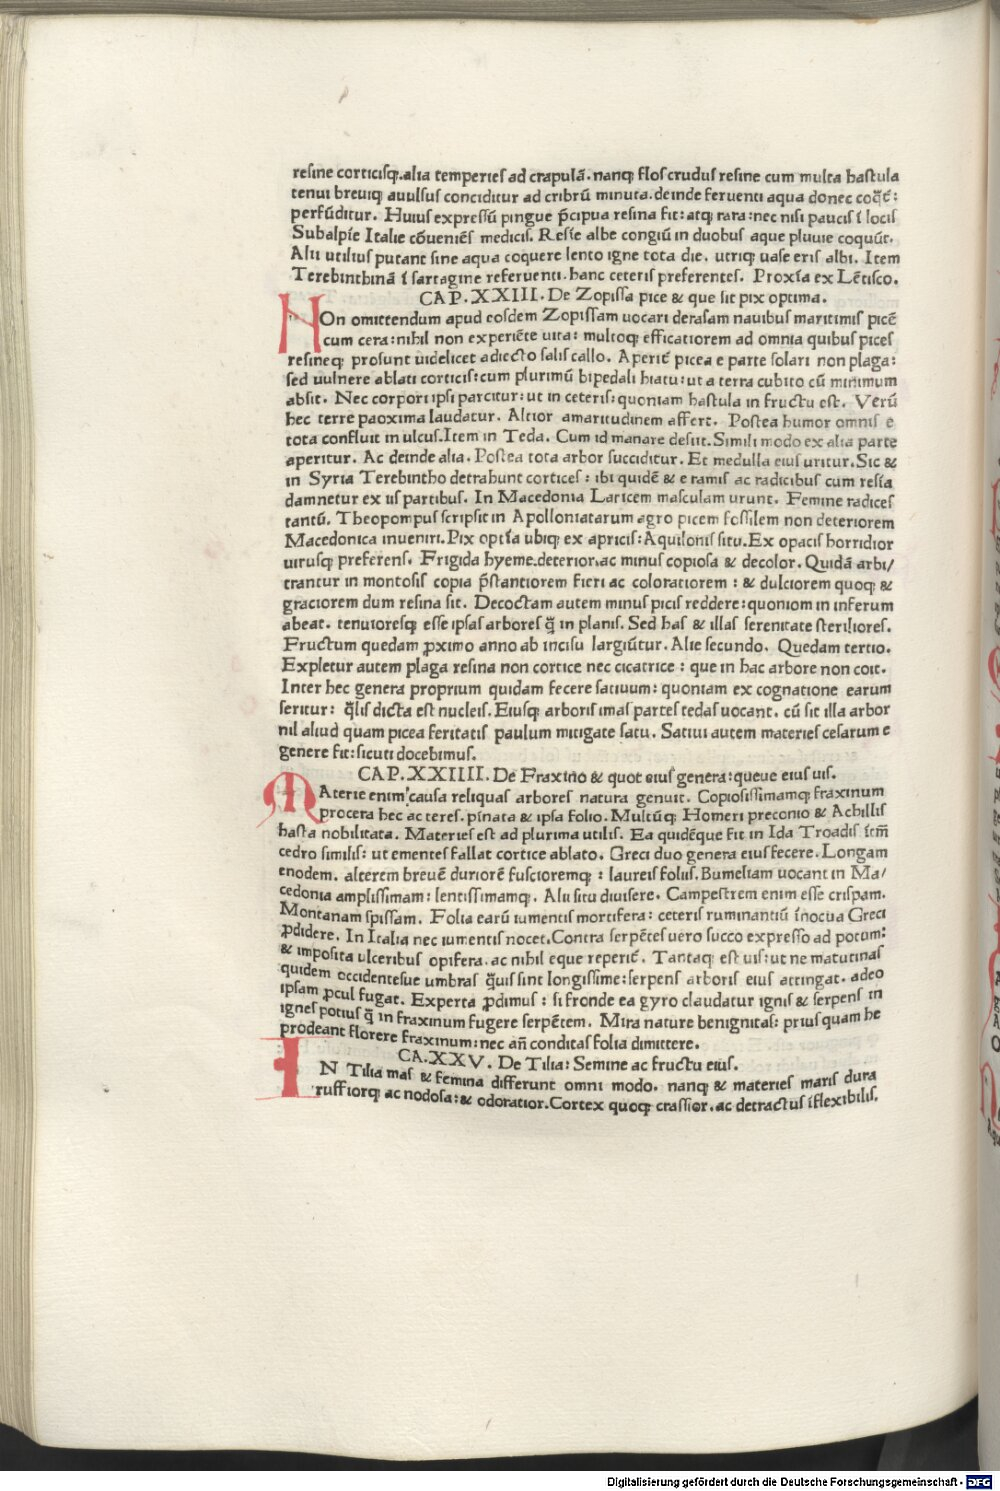 resine corticisq̃.alia temperies ad crapulā. nanq̃ flos crudus resine cum multa hastula
tenui breuiq̃ auulsus conciditur ad cribrū minuta. deinde feruenti aqua donec coq̄t̄:
perfūditur. Huius expressū pingue p̄cipua resina fit: atq̃ rara: nec nisi paucis ī locis
Subalpīe Italie cōueniēs medicis. Resīe albe congiū in duobus aque pluuie coquūt.
Alii utilius putant sine aqua coquere lento igne tota die. utriq̃ uase eris albi. Item
Terebinthinā ī sartagine referuenti. hanc ceteris preferentes. Proxīa ex Lētisco.
CAP.XXIII. De Zopissa pice & que sit pix optima.
NOn omittendum apud eosdem Zopissam uocari derasam nauibus maritimis picē
cum cera: nihil non experiēte uita: multoq̃ efficatiorem ad omnia quibus pices
resineq̃ prosunt uidelicet adiecto salis callo. Aperit̄ picea e parte solari non plaga:
sed uulnere ablati corticis: cum plurimū bipedali hiatu: ut a terra cubito cū minimum
absit. Nec corpori ipsi parcitur: ut in ceteris: quoniam hastula in fructu est. Verū
hec terre paoxima laudatur. Altior amaritudinem affert. Postea humor omnis e
tota confluit in ulcus. Item in Teda. Cum id manare desiit. Simili modo ex alia parte
aperitur. Ac deinde alia. Postea tota arbor succiditur. Et medulla eius uritur. Sic &
in Syria Terebintho detrahunt cortices: ibi quidē & e ramis ac radicibus cum resīa
damnetur ex iis partibus. In Macedonia Laricem masculam urunt. Femine radices
tantū. Theopompus scripsit in Apolloniatarum agro picem fossilem non deteriorem
Macedonica inueniri. Pix optīa ubiq̃ ex apricis: Aquilonis situ. Ex opacis horridior
uirusq̃ preferens. Frigida hyeme deterior. ac minus copiosa & decolor. Quidā arbi/
trantur in montosis copia p̄stantiorem fieri ac coloratiorem: & dulciorem quoq̃ &
graciorem dum resina sit. Decoctam autem minus picis reddere: quoniom in inferum
abeat. tenuioresq̃ esse ipsas arbores q̄ in planis. Sed has & illas serenitate steriliores.
Fructum quedam ꝓximo anno ab incisu largiūtur. Alie secundo. Quedam tertio.
Expletur autem plaga resina non cortice nec cicatrice: que in hac arbore non coit.
Inter hec genera proprium quidam fecere satiuum: quoniam ex cognatione earum
seritur: q̄lis dicta est nucleis. Eiusq̃ arboris imas partes tedas uocant. cū sit illa arbor
nil aliud quam picea feritatis paulum mitigate satu. Satiui autem materies cesarum e
genere fit: sicuti docebimus.
CAP.XXIIII. De Fraxino & quot eius genera: queue eius uis.
MAterie enim causa reliquas arbores natura genuit. Copiosissimamq̃ fraxinum
procera hec ac teres. pīnata & ipsa folio. Multūq̃ Homeri preconio & Achillis
hasta nobilitata. Materies est ad plurima utilis. Ea quidēque fit in Ida Troadis īm̄
cedro similis: ut ementes fallat cortice ablato. Greci duo genera eius fecere. Longam
enodem. alterem breuē duriorē fuscioremq̃: laureis foliis. Bumeliam uocant in Ma/
cedonia amplissimam: lentissimamq̃. Alii situ diuisere. Campestrem enim esse crispam.
Montanam spissam. Folia earū iumentis mortifera: ceteris ruminantiū īnocua Greci
ꝓdidere. In Italia nec iumentis nocet. Contra serpētes uero succo expresso ad potum:
& imposita ulceribus opifera. ac nihil eque reperit̄. Tantaq̃ est uis: ut ne matutinas
quidem occidentesue umbras q̄uis sint longissime: serpens arboris eius attingat. adeo
ipsam ꝓcul fugat. Experta ꝓdimus: si fronde ea gyro claudatur ignis & serpens in
ignes potius q̄ in fraxinum fugere serpētem. Mira nature benignitas: prius quam he
prodeant florere fraxinum: nec an̄ conditas folia dimittere.
CA.XXV. De Tilia: Semine ac fructu eius.
IN Tilia mas & femina differunt omni modo. nanq̃ & materies maris dura
ruffiorq̃ ac nodosa: & odoratior. Cortex quoq̃ crassior. ac detractus īflexibilis.
Digitalisierung gefördert durch die Deutsche Forschungsgemeinschaft - DFG